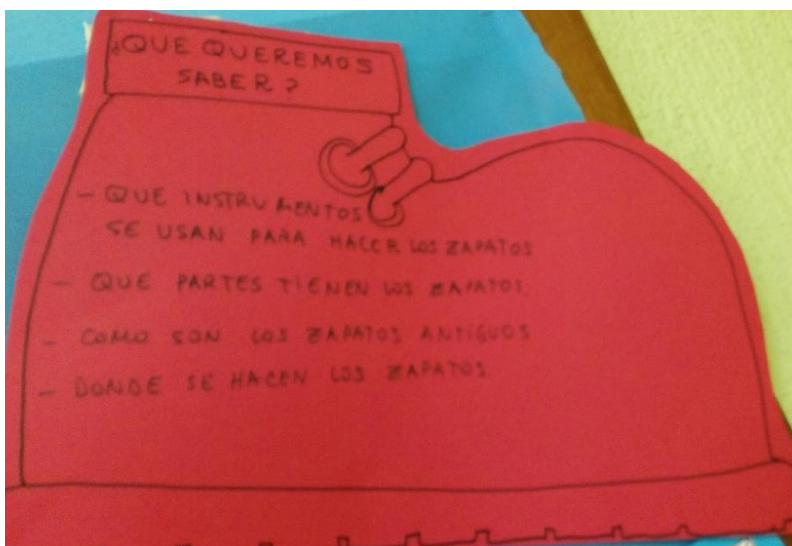 ¿QUE QUEREMOS
SABER?
- QUE INSTRUMENTOS
SE USAN PARA HACER LOS ZAPATOS
- QUE PARTES TIENEN LOS ZAPATOS
- COMO SON LOS ZAPATOS ANTIGUOS
- DONDE SE HACEN LOS ZAPATOS